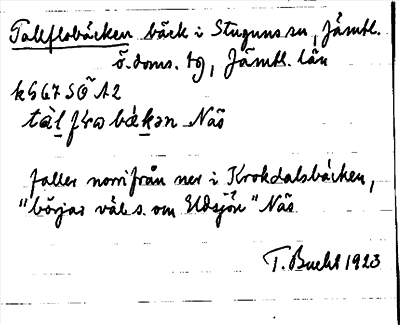 Tallflobäcken bäck i Stuguns sn, Jämtl.
ö. doms. tg, Jämtl. län
k 567 SÖ A2
Näs
faller norrifrån ner i Krokdalsbäcken,
"börjar väl s. om Eldsjön" Näs
T. Bucht 1923